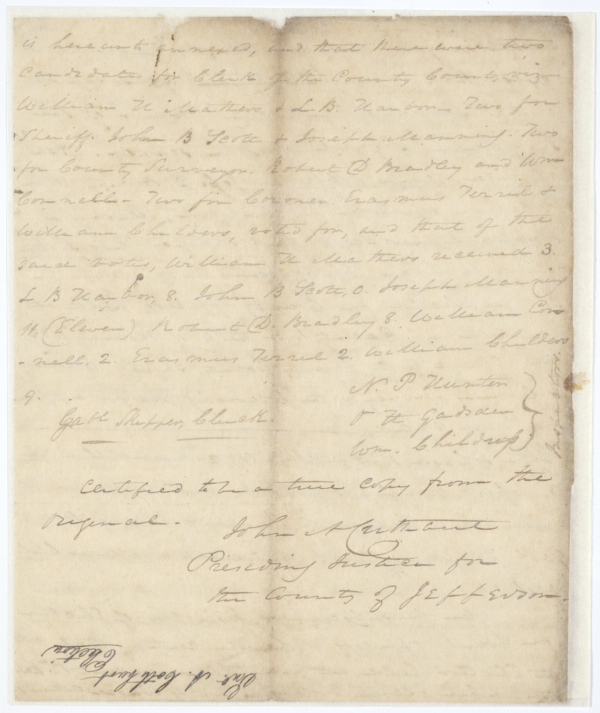 is hereunto annexed, and that there were two
Candidates for Clerk of the County Court, viz
William H Mathews & L. B. Naybor Two for
Sheriff. John B Scott & Joseph Manning. Two
for County Surveyor Robert D Bradley and Wm
Connell - Two for Coroner Erasmus Terril &
William Childers, voted for, and that of the
said votes, William H Mathews received 3.
L B Naybor, 8. John B Scott, 0. Joseph Manning
11, (Eleven) Robert D. Bradley 8. William Con
-nell, 2. Erasmus Terril 2. William Childers
9.
N. P. Hunter
H Gadsden
Wm. Childress
Inspectors
Skipper, Clerk.
Certified to be a true Copy from the
Original.
John A Cuthbert
Presiding Justice for
the County of Jefferson.
Jno. A. Cuthbert
Election